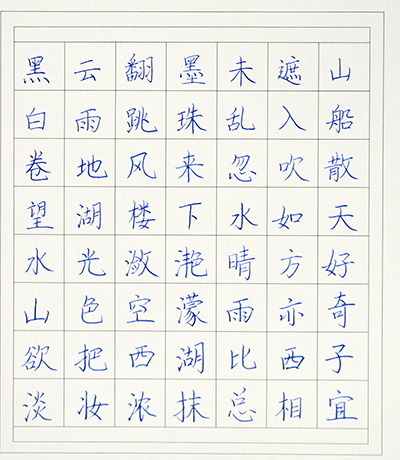 黑云翻墨未遮山
白雨跳珠乱入船
卷地风来忽吹散
望湖楼下水如天
水光潋滟晴方好
山色空濛雨亦奇
欲把西湖比西子
淡妆浓抹总相宜